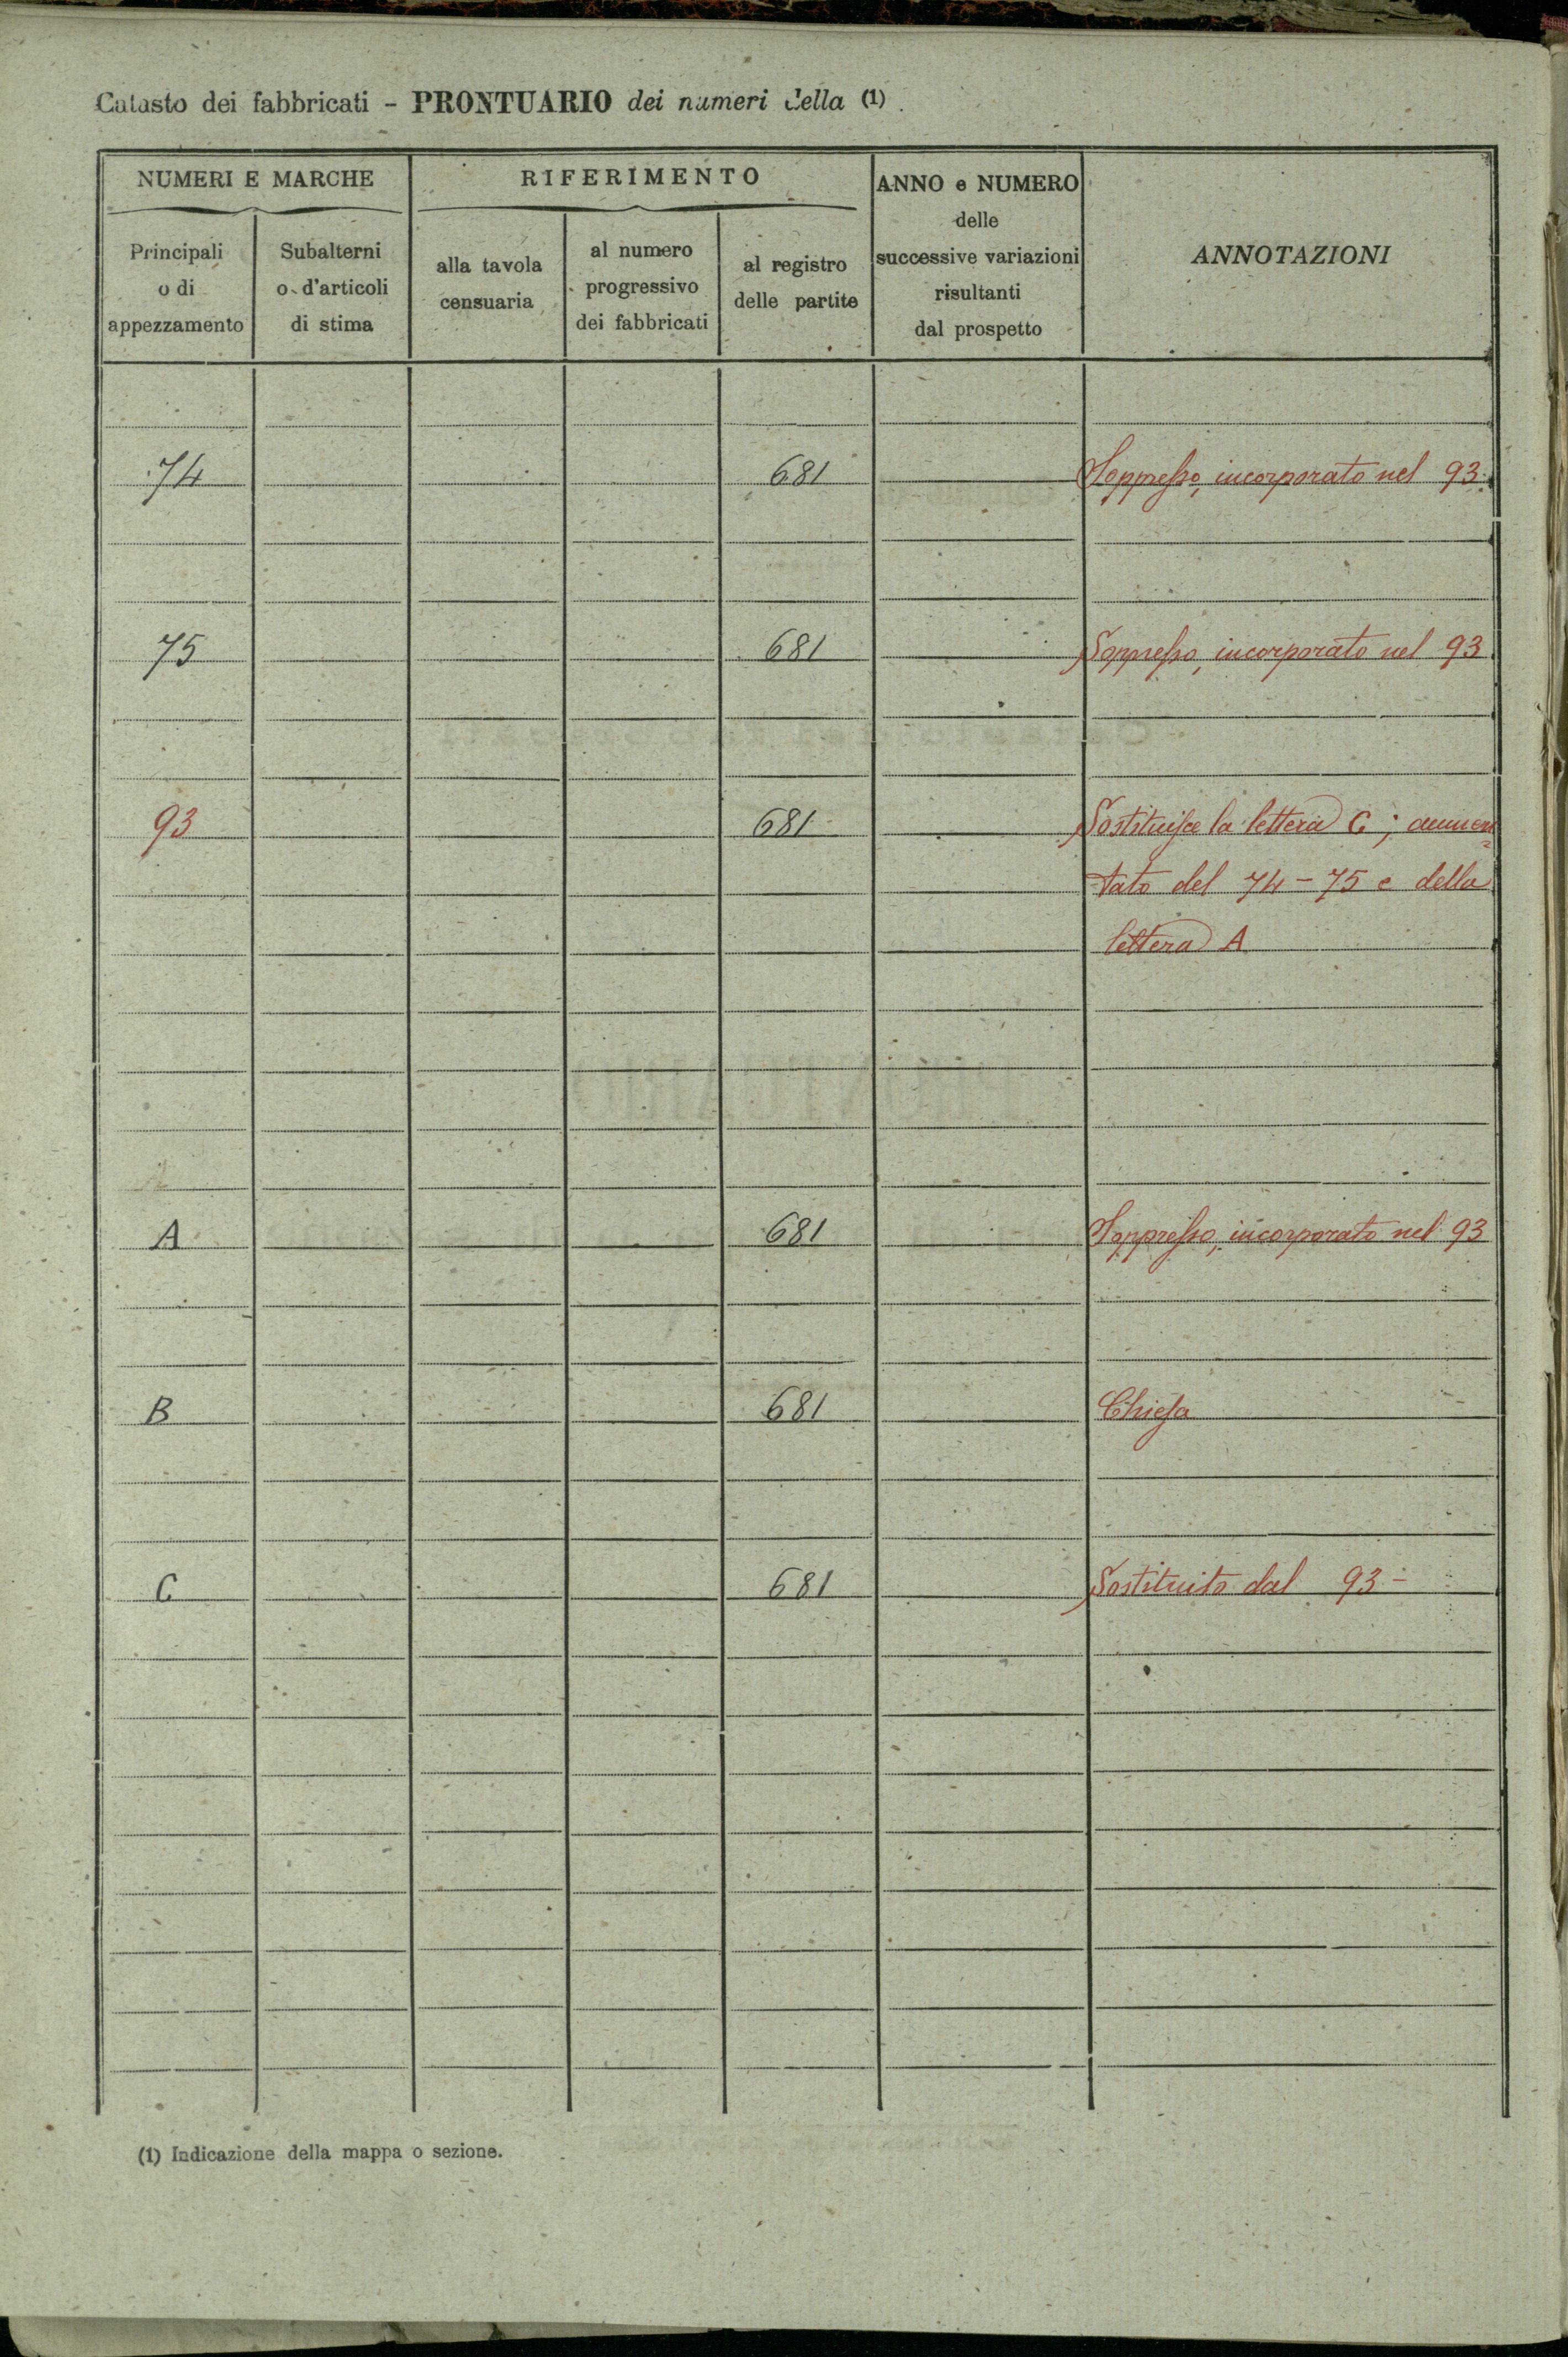 Catasto dei fabbricati - PRONTUARIO dei numeri della (1)
NUMERI E MARCHE
RIFERIMENTO
ANNO e NUMERO
delle
successive variazioni
risultanti
dal prospetto
ANNOTAZIONI
Principali
o di
appezzamento
Subalterni
o d'articoli
di stima
alla tavola
censuaria
al numero
progressivo
dei fabbricati
al registro
delle partite
74 681 Soppresso, incorporato nel 93.
75 681 Soppresso, incorporato nel 93
93 681 Sostituisce la lettera C; aumen=
tato del 74-75 e della
lettera A
A 681 Soppresso, incorporato nel 93
B 681 Chiesa
C 681 Sostituito dal 93-
(1) Indicazione della mappa o sezione.